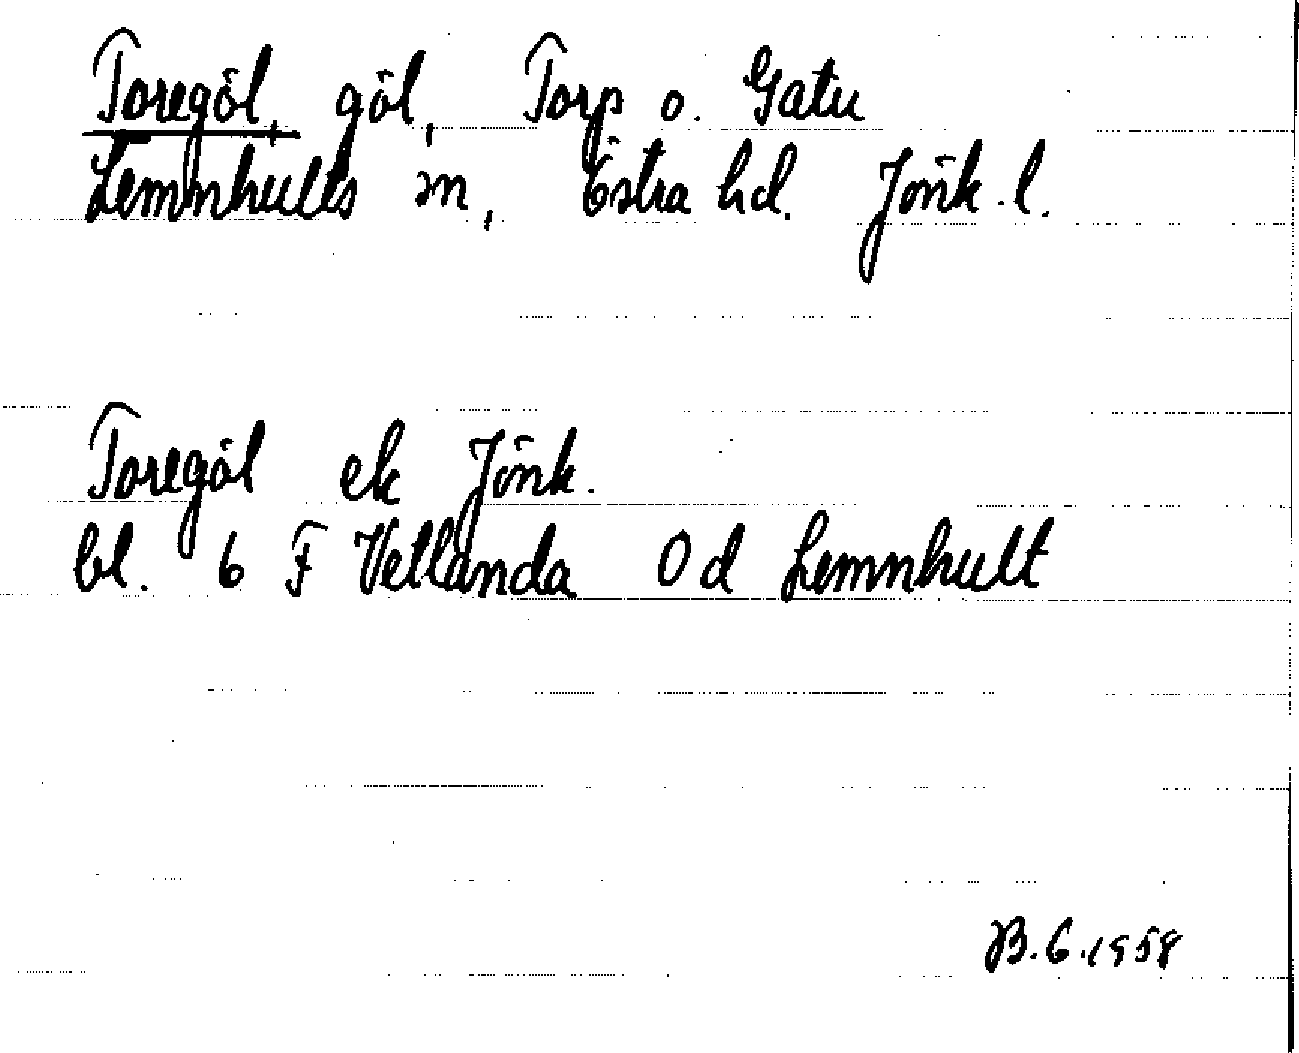 Toregöl, göl, Torp o. Gatu
Lemnhults sn, Östra hd. Jönk. l.
Toregöl ek Jönk.
bl. 6 F Vetlanda Od Lemnhult
B. G. 1958